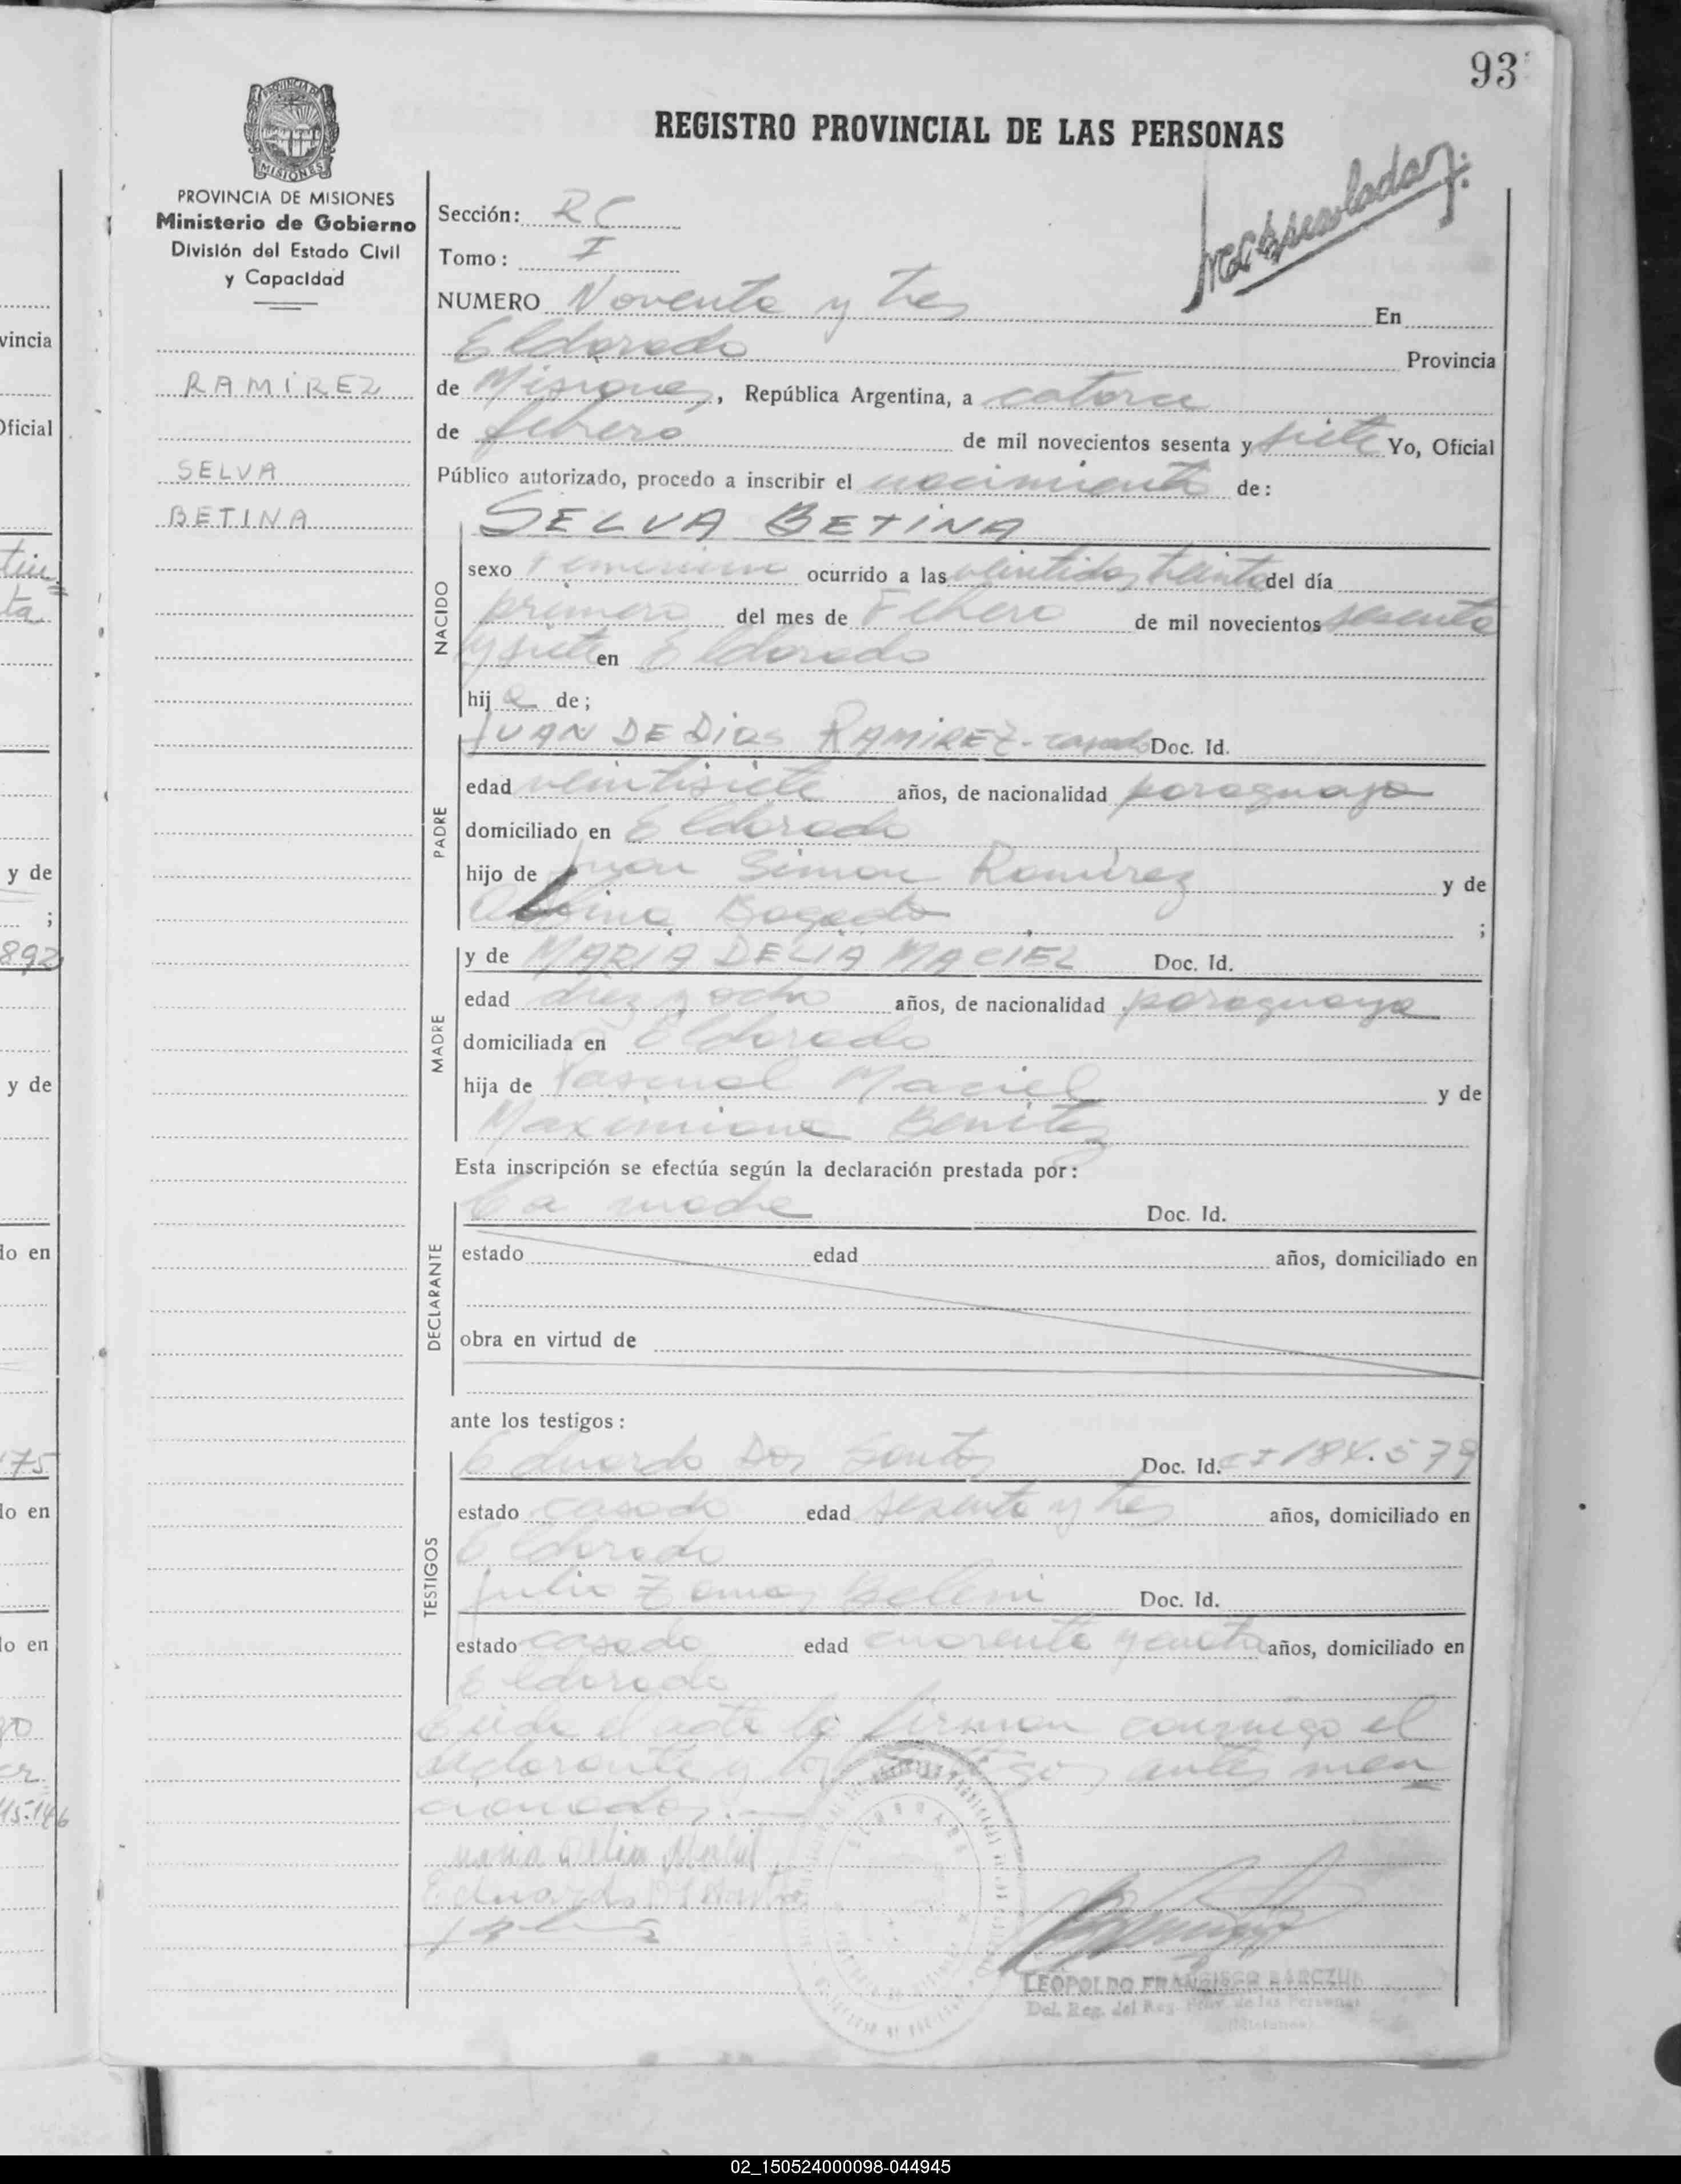 93
REGISTRO PROVINCIAL DE LAS PERSONAS
PROVINCIA DE MISIONES
MISIONES
PROVINCIA DE MISIONES
Ministerio de Gobierno
División del Estado Civil
y Capacidad
RAMÍREZ
SELVA
BETINA
Sección: RC
Tomo: I
NUMERO Noventa y tres En
Eldorado Provincia
de Misiones, República Argentina, a catorce
de febrero de mil novecientos sesenta y siete Yo, Oficial
Público autorizado, procedo a inscribir el nacimiento de:
SELVA BETINA
NACIDO
sexo Femenino ocurrido a las veintidos treinta del día
primero del mes de Febrero de mil novecientos sesenta
y siete en Eldorado
hija de;
PADRE
JUAN DE DIOS RAMIREZ - casado Doc. Id.
edad veintisiete años, de nacionalidad paraguaya
domiciliado en Eldorado
hijo de Juan Simon Ramírez y de
Bogado ;
MADRE
y de MARIA DELIA MACIEL Doc. Id.
edad diez y ocho años, de nacionalidad paraguaya
domiciliada en Eldorado
hija de Pascual Maciel y de
Maximiana Benitez
Esta inscripción se efectúa según la declaración prestada por:
DECLARANTE
La madre Doc. Id.
estado edad años, domiciliado en
obra en virtud de
ante los testigos:
TESTIGOS
Eduardo Dos Santos Doc. Id. CI 184.579
estado casado edad sesenta y tres años, domiciliado en
Eldorado
Julio Doc. Id.
estado casado edad cuarenta y cuatro años, domiciliado en
Eldorado
Leida el acta la firman conmigo el
declarante y los testigos antes men
cionados.-
Maria Delia Maciel
Eduardo
LEOPOLDO FRANCISCO BARCZUK
Del. Reg. del Reg. Prov. de las Personas
(Misiones)
vincia
Oficial
y de
;
892
y de
do en
175
do en
do en
02_150524000098-044945